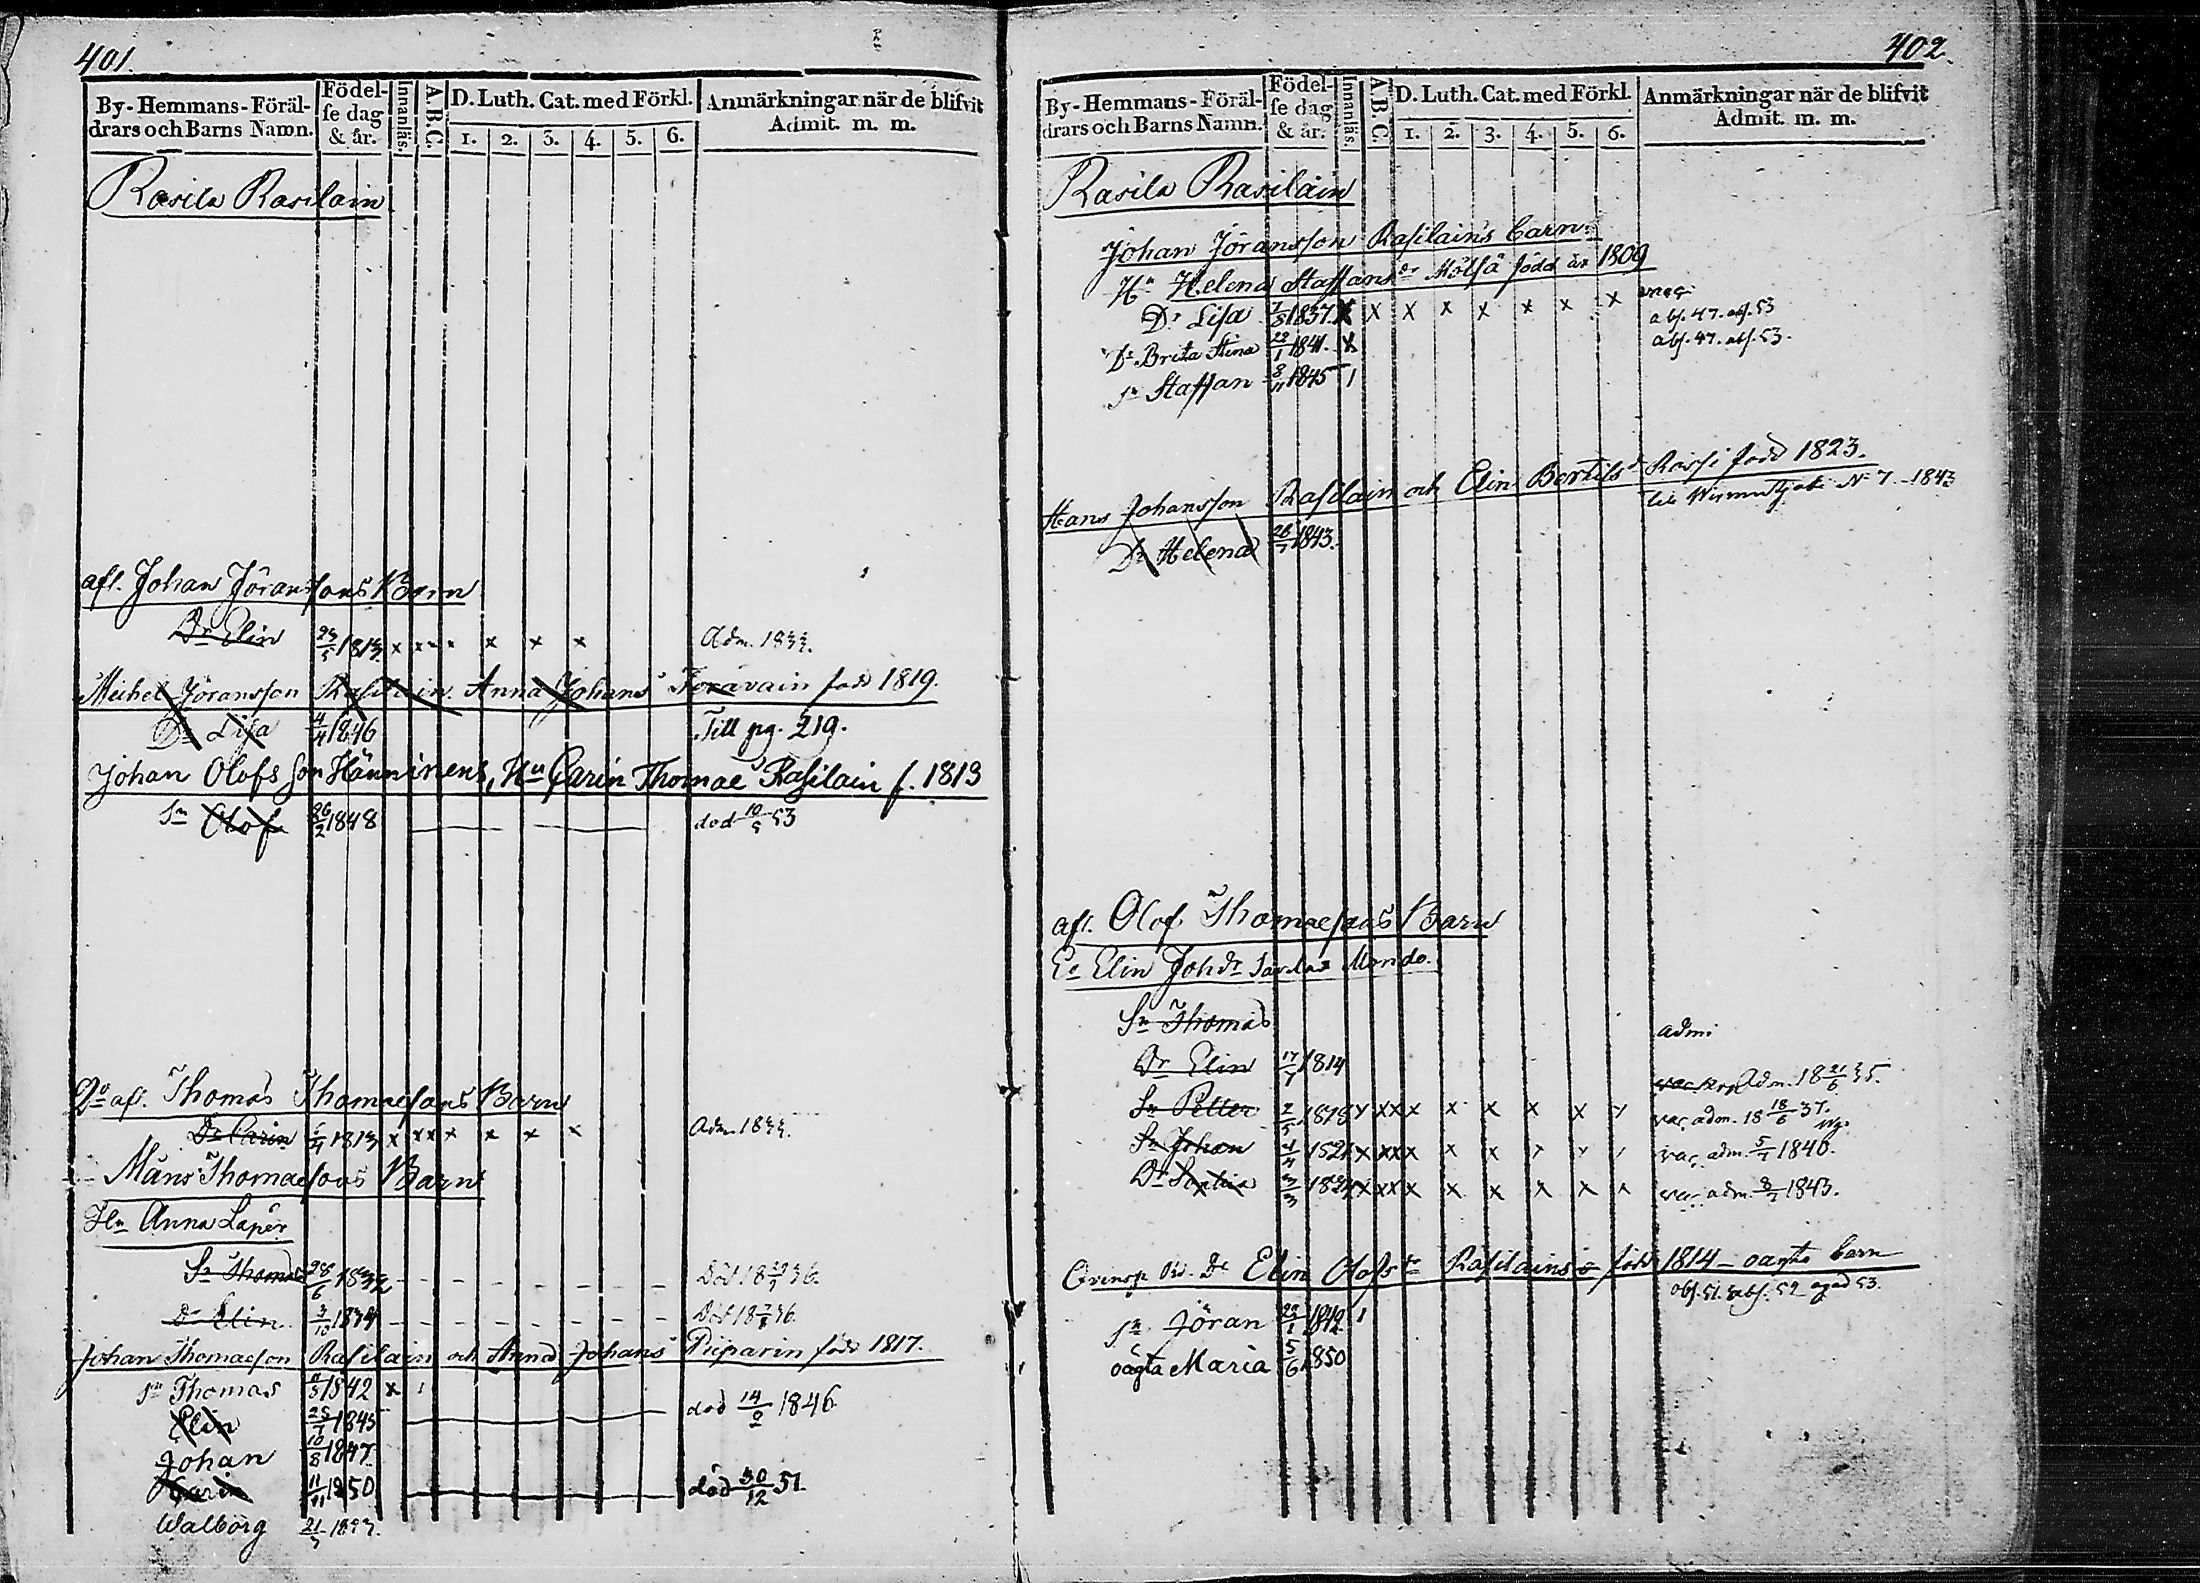 401.
By-Hemmans-Föräl-
drars och Barns Namn.
Födel-
se dag
& år.
Innanläs.
A.B.C.
D. Luth. Cat. med Förkl.
1. 2. 3. 4. 5. 6.
Anmärkningar när de blifvit
Admit. m. m.
Rasila Rasilain
afl. Johan Jöranssons Barn
Dr Elin 23/5 1813 x x x x x x x Adm. 1833.
Michel Jöransson Rasilain Anna Johans Toravain född 1819.
Dr Lisa 4/4 1846 Till pg. 219.
Johan Olofsson Hänninens, Hu Carin Thomae Rasilain f. 1813
Sn Olof 26/2 1848 död 10/5 53
Do afl. Thomas Thomaessons Barn
Dr Carin 1813 x x x x x x x Adm. 1833.
Måns Thomaessons Barn
Hu Anna Lapër
Sn Thomas 28/6 1832 Död 36.
Dr Elin 3/10 1834 Död 36.
Johan Thomaesson Rasilain och Anna Johans Piiparin född 1817.
Sn Thomas 1842 x 1
Elin 25/7 1845 död 14/9 1846
Johan 10/8 1847.
Karin 11/11 1850 död 30/12 51.
Walborg 21/3 1853.
402.
By-Hemmans-Föräl-
drars och Barns Namn.
Födel-
se dag
& år.
Innanläs.
A.B.C.
D. Luth. Cat. med Förkl.
1. 2. 3. 4. 5. 6.
Anmärkningar när de blifvit
Admit. m. m.
Rasila Rasilain
Johan Jöransson Rasilains barn:
Hu Helena Staffansdr Mölsä född år 1809
Dr Lisa 7/8 1837. x x x x x x x x abs. 47. abs. 53
Dr Brita Stina 29/1 1841. x abs. 47. abs. 53.
Sn Staffan 8/11 1845 1
Hans Johansson Rasilain och Elin Bertilsdr Rossi född 1823.
Dr Helena 26/7 1843. N 7 1843
afl. Olof Thomaessons Barn
Ea Elin Johdr Savlax Mondo.
Sn Thomas admi
Dr Elin 17/7 1814
Sn Petter 2/5 1818 x x x x x x x x x vac. adm. 18 18/6 37.
Sn Johan 4/4 1821 x x x x x x x x x vac. adm. 5/7 1840.
Dr Sophia 3/3 1824 x x x x x x x x x vac. adm. 8/7 1843.
Qvinsp. Dr Elin Olofsdr Rasilains född 1814 – oägta barn
Sn Jöran 29/1 1842 1 abs. 51. abs. 52
oägta Maria 5/6 1850